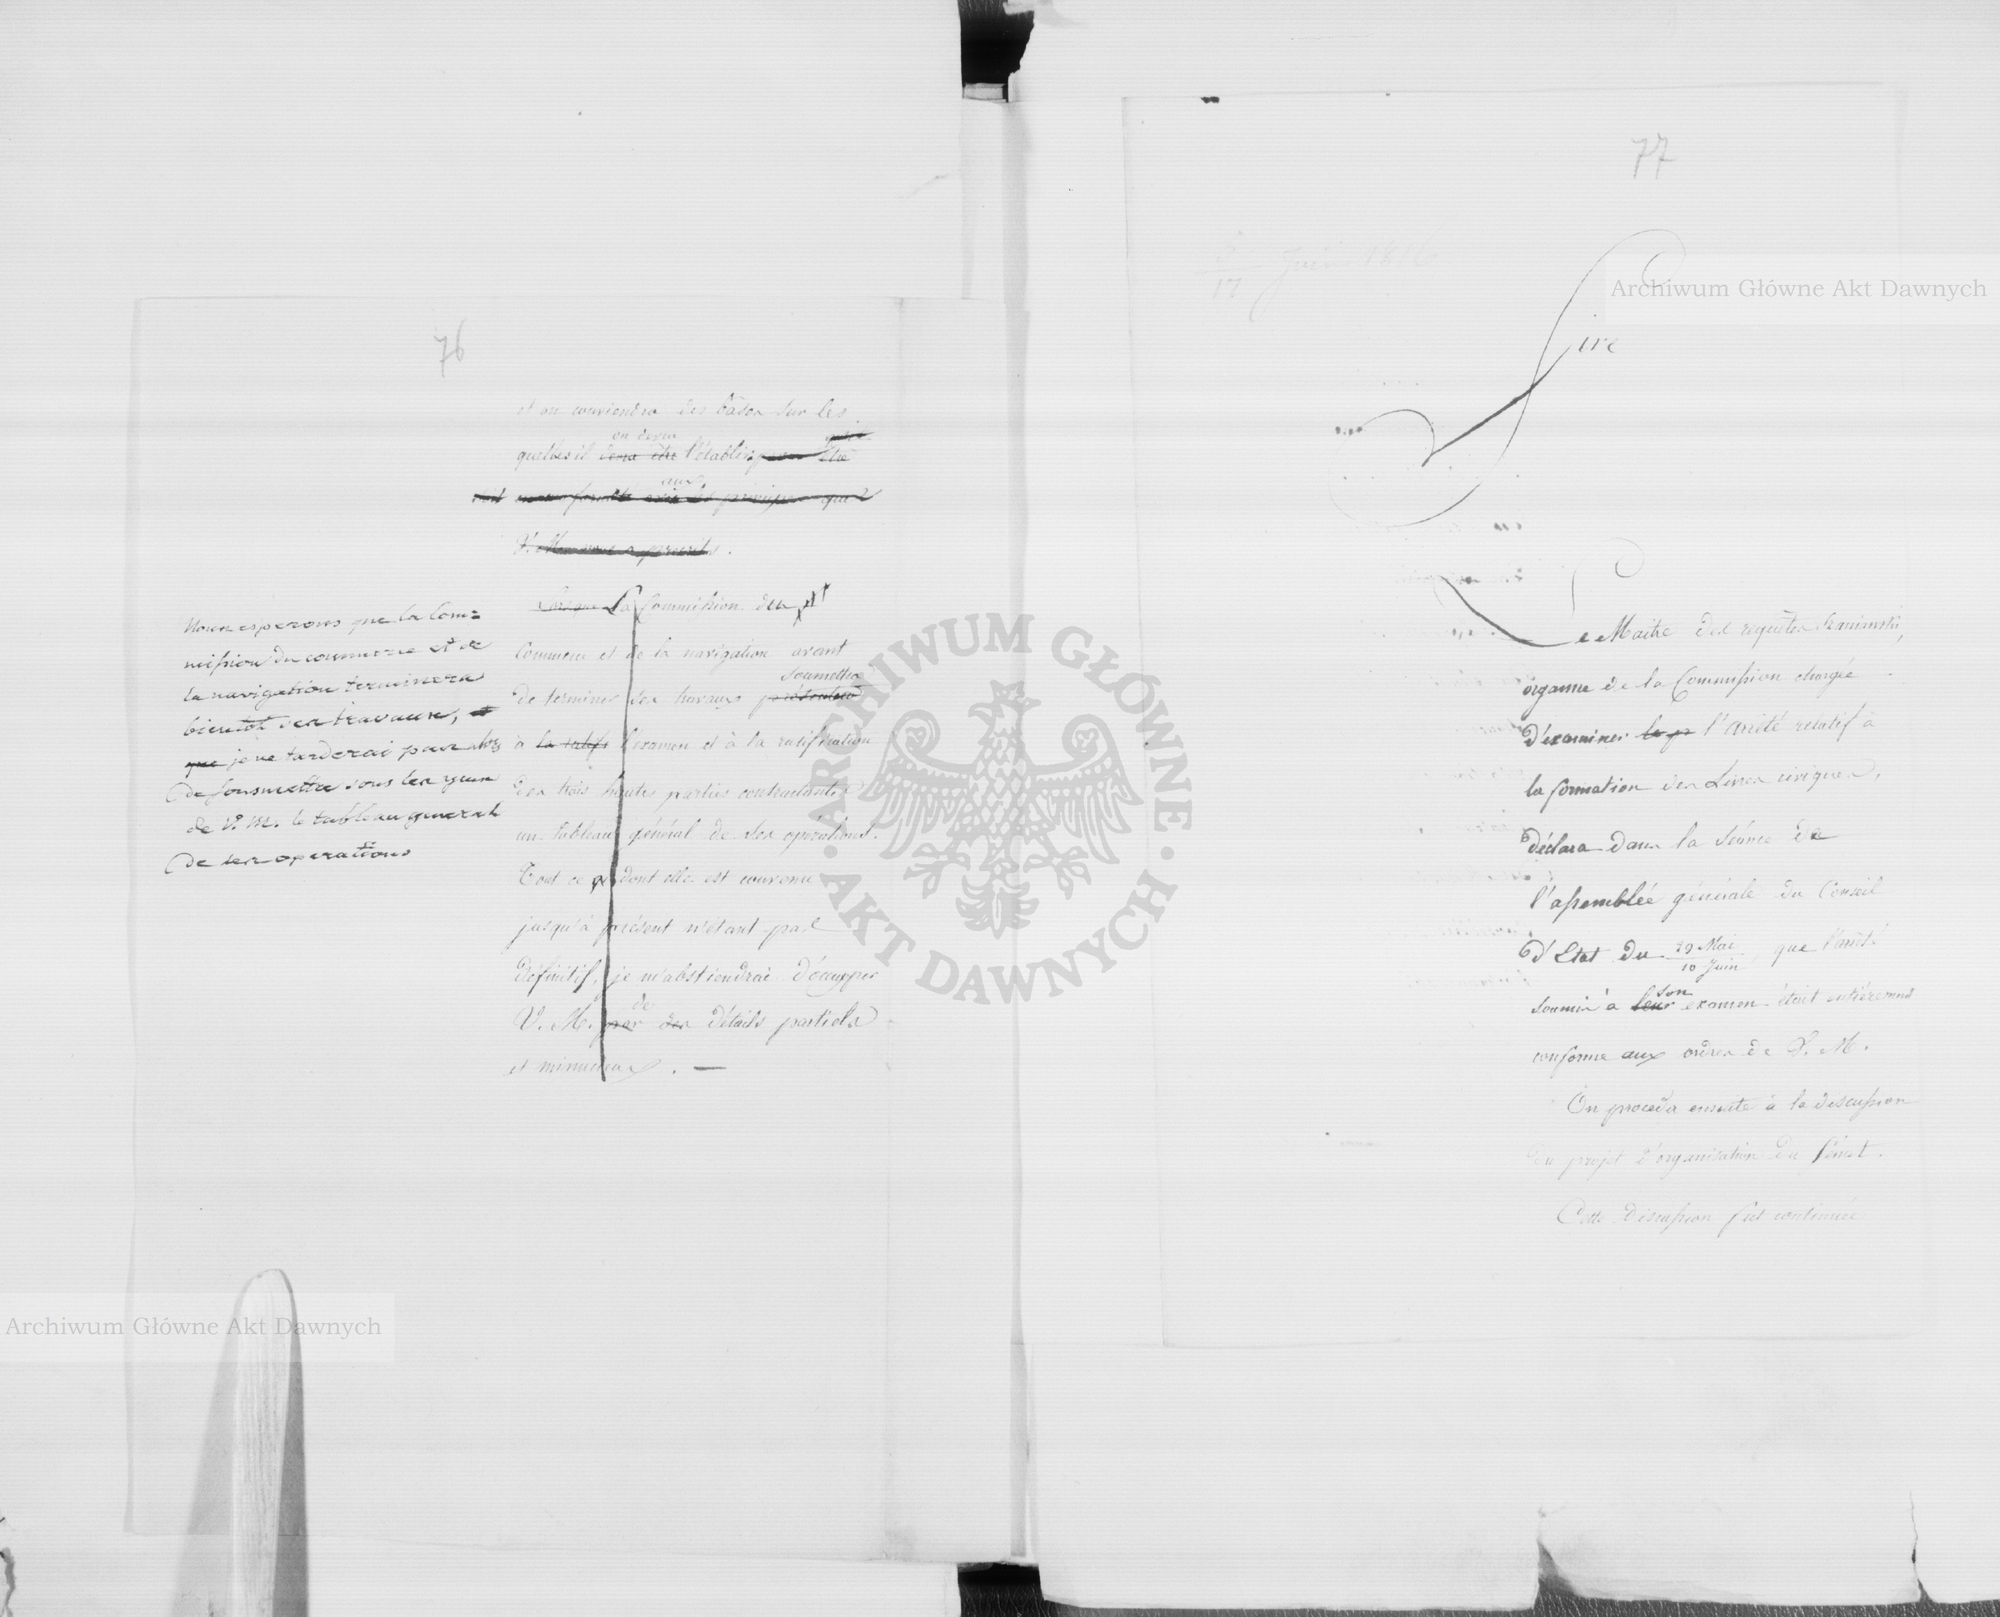 76
et on conviendra des bâses sur les
quelles il sera être on devra l'établir pour être
soit aux principes que
V. M. nous a prescrits.
Lorsque La Commission du
Commerce et de la navigation avant
de terminer ses travaux présentera soumettra
à la ratifi l'examen et à la ratification
des trois hautes parties contractantes
un tableau général de ses opérations.
Tout ce dont elle est convenu
jusqu'à présent n'étant pas
définitif, je m'abstiendrai d'occupper
V. M. par des de détails partiels
et minucieux. —
Nous esperons que la Com=
mission du commerce et de
la navigation terminera
bientôt ses travaux, et
que je ne tarderai pas alors
de soumettre sous les yeux
de V. M. le tableau general
de ses operations
77
5/17 Juin 1816
Sire
Le Maitre des requêtes
organne de la Commission chargée
d'examiner l'arrêté relatif à
la formation des Livres civiques,
déclara dans la séance de
l'assemblée générale du Conseil
d'Etat du 29 Mai/10 Juin, que l'arrêté
soumis à leur son examen était entièrement
conforme aux ordres de V. M.
On proceda ensuite à la discussion
du projet d'organisation du Sénat.
Cette discussion fut continuée
Archiwum Główne Akt Dawnych
Archiwum Główne Akt Dawnych
ARCHIWUM GŁÓWNE
AKT DAWNYCH